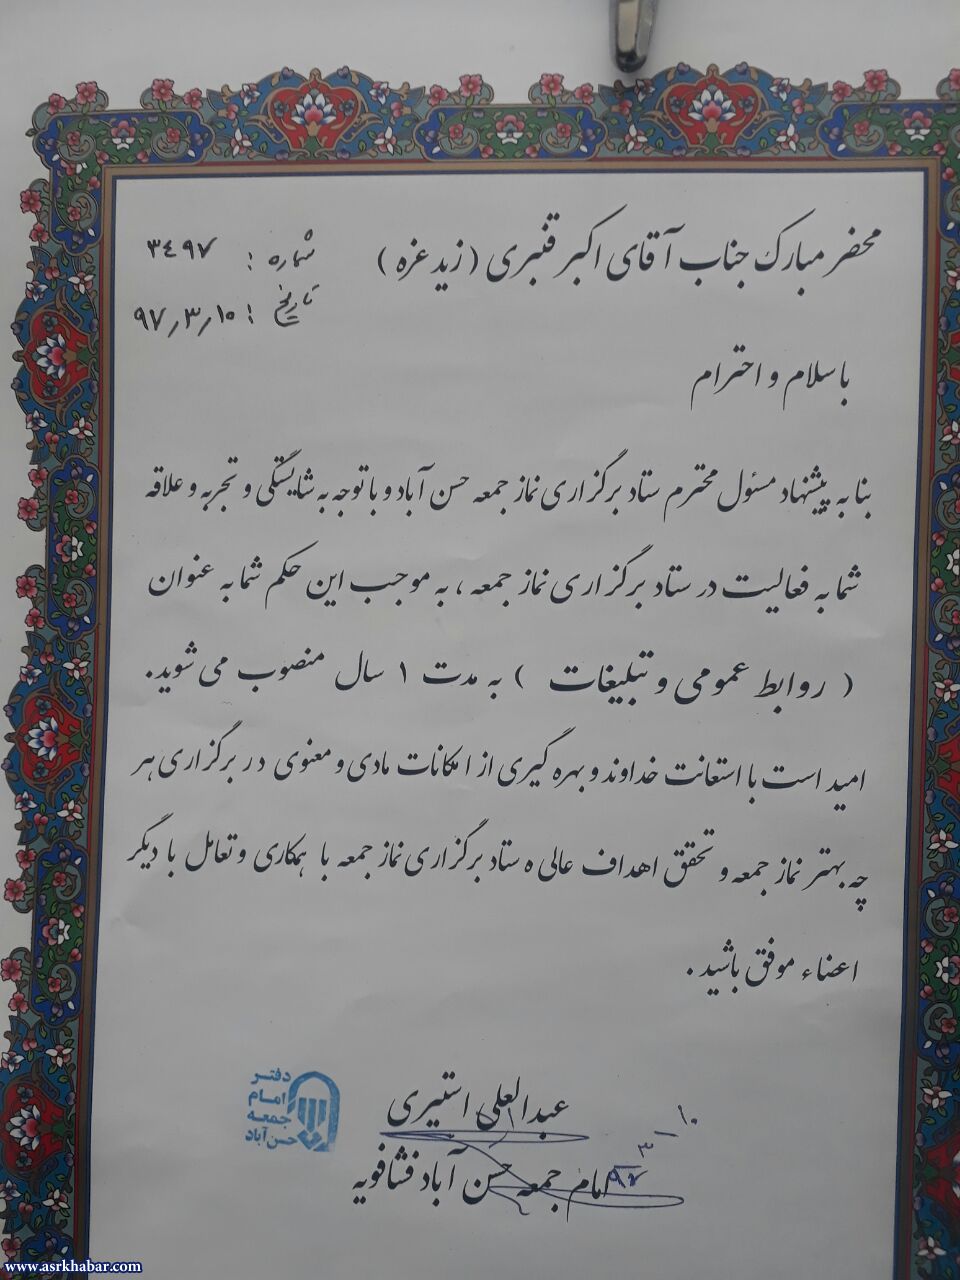 محضر مبارک جناب آقای اکبر قنبری (زید عزه)
شماره : ۳٤۹۷
تاریخ : ۹۷٫۳٫۱۰
با سلام و احترام
بنا به پیشنهاد مسئول محترم ستاد برگزاری نماز جمعه حسن آباد و با توجه به شایستگی و تجربه و علاقه
شما به فعالیت در ستاد برگزاری نماز جمعه ، به موجب این حکم شما به عنوان
( روابط عمومی و تبلیغات ) به مدت ۱ سال منصوب می شوید.
امید است با استعانت خداوند و بهره گیری از امکانات مادی و معنوی در برگزاری هر
چه بهتر نماز جمعه و تحقق اهداف عالی ه ستاد برگزاری نماز جمعه با همکاری و تعامل با دیگر
اعضاء موفق باشید .
دفتر
امام
جمعه
حسن آباد
عبدالعلی استیری
امام جمعه حسن آباد فشافویه
۹۷/۳/۱۰
www.asrkhabar.com